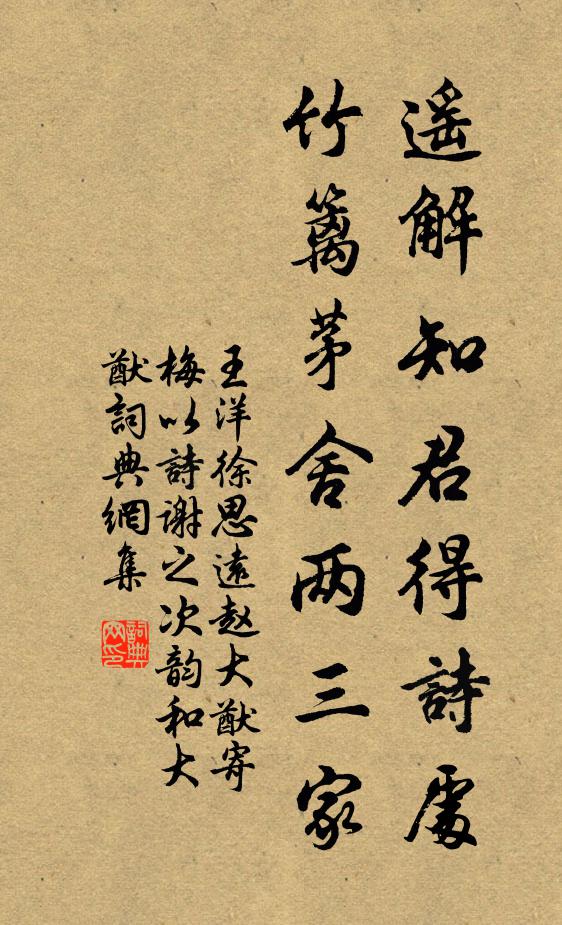 遥解知君得詩處
竹籬茅舍两三家
王洋徐思遠趙大猷寄
梅以詩谢之次韵和大
猷詞典網集
詞典网印